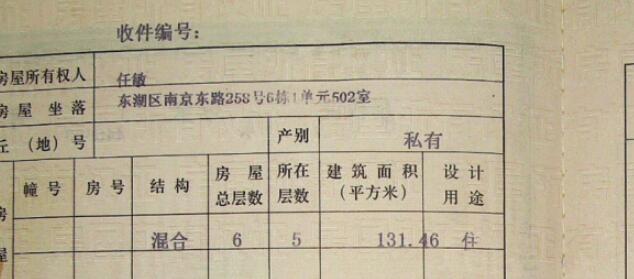 收件编号：
房屋所有权人 任敏
房屋坐落 东湖区南京东路258号6栋1单元502室
丘（地）号 产别 私有
幢号 房号 结构 房屋总层数 所在层数 建筑面积（平方米） 设计用途
混合 6 5 131.46 住
房
屋